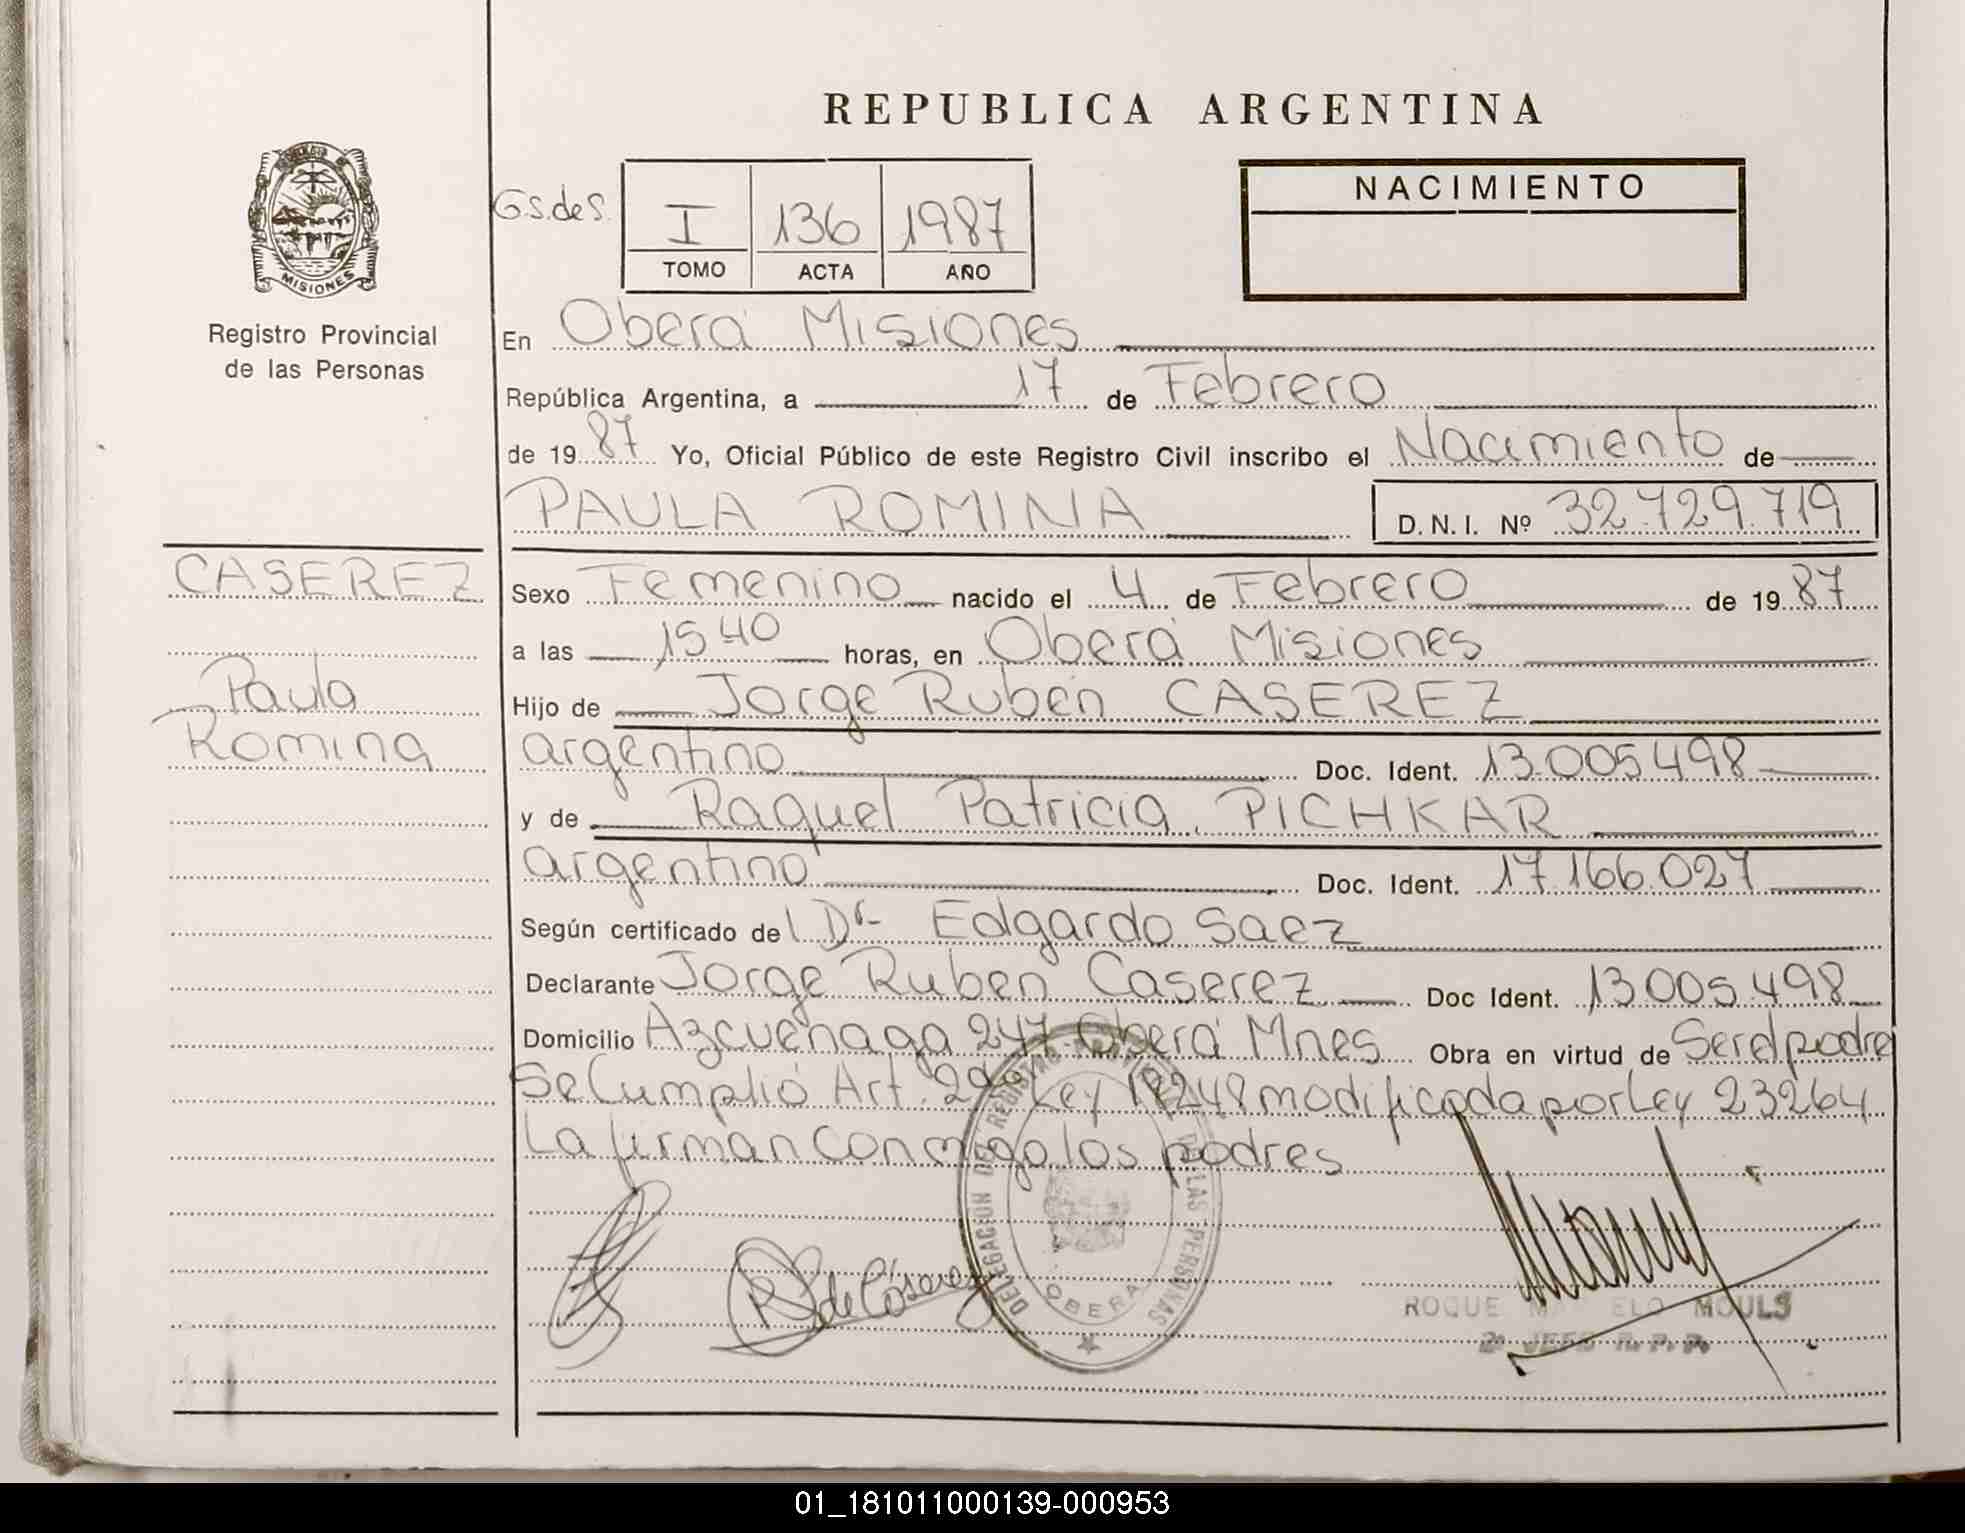 REPUBLICA ARGENTINA
MISIONES
Registro Provincial
de las Personas
G.S.deS.
I 136 1987
TOMO ACTA AÑO
NACIMIENTO
En Oberá Misiones
República Argentina, a 17 de Febrero
de 1987 Yo, Oficial Público de este Registro Civil inscribo el Nacimiento de
PAULA ROMINA D.N.I. Nº 32.729.719
CASEREZ
Paula
Romina
Sexo Femenino nacido el 4 de Febrero de 1987
a las 15 40 horas, en Oberá Misiones
Hijo de Jorge Rubén CASEREZ
argentino Doc. Ident. 13.005.498
y de Raquel Patricia PICHKAR
argentino Doc. Ident. 17.166.027
Según certificado del Dr- Edgardo Saez
Declarante Jorge Ruben Caserez Doc Ident. 13.005.498
Domicilio Azcuénaga 247 Oberá Mnes Obra en virtud de Ser el padre
Se Cumplió Art. 2do Ley 18248 modificada por Ley 23264
La firman conmigo los padres
DELEGACION DEL REGISTRO PROVINCIAL DE LAS PERSONAS
OBERA
de Cáserez
ROQUE MOULS
2º JEFE R.P.P.
01_181011000139-000953